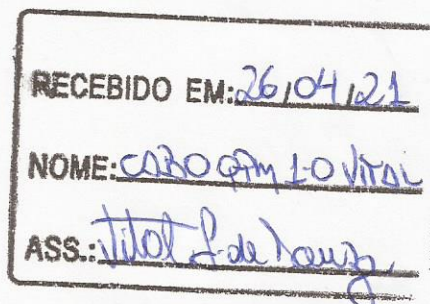 RECEBIDO EM: 26/04/21
NOME: CABO QPM 1-0 VITAL
ASS.: Vital S. de Souza